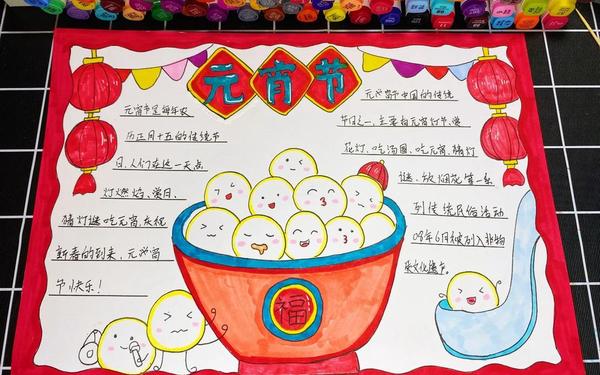 元宵节
元宵节是每年农
历正月十五的传统节
日、人们在这一天点
灯燃焰、赏月、
猜灯谜吃元宵庆祝
新春的到来、元宵
节快乐！
元宵节中国的传统
节日之一、主要有元宵灯节、赏
花灯、吃汤圆、吃元宵、猜灯
谜、放烟花等一系
列传统民俗活动
08年6月被列入非物
质文化遗产。
福